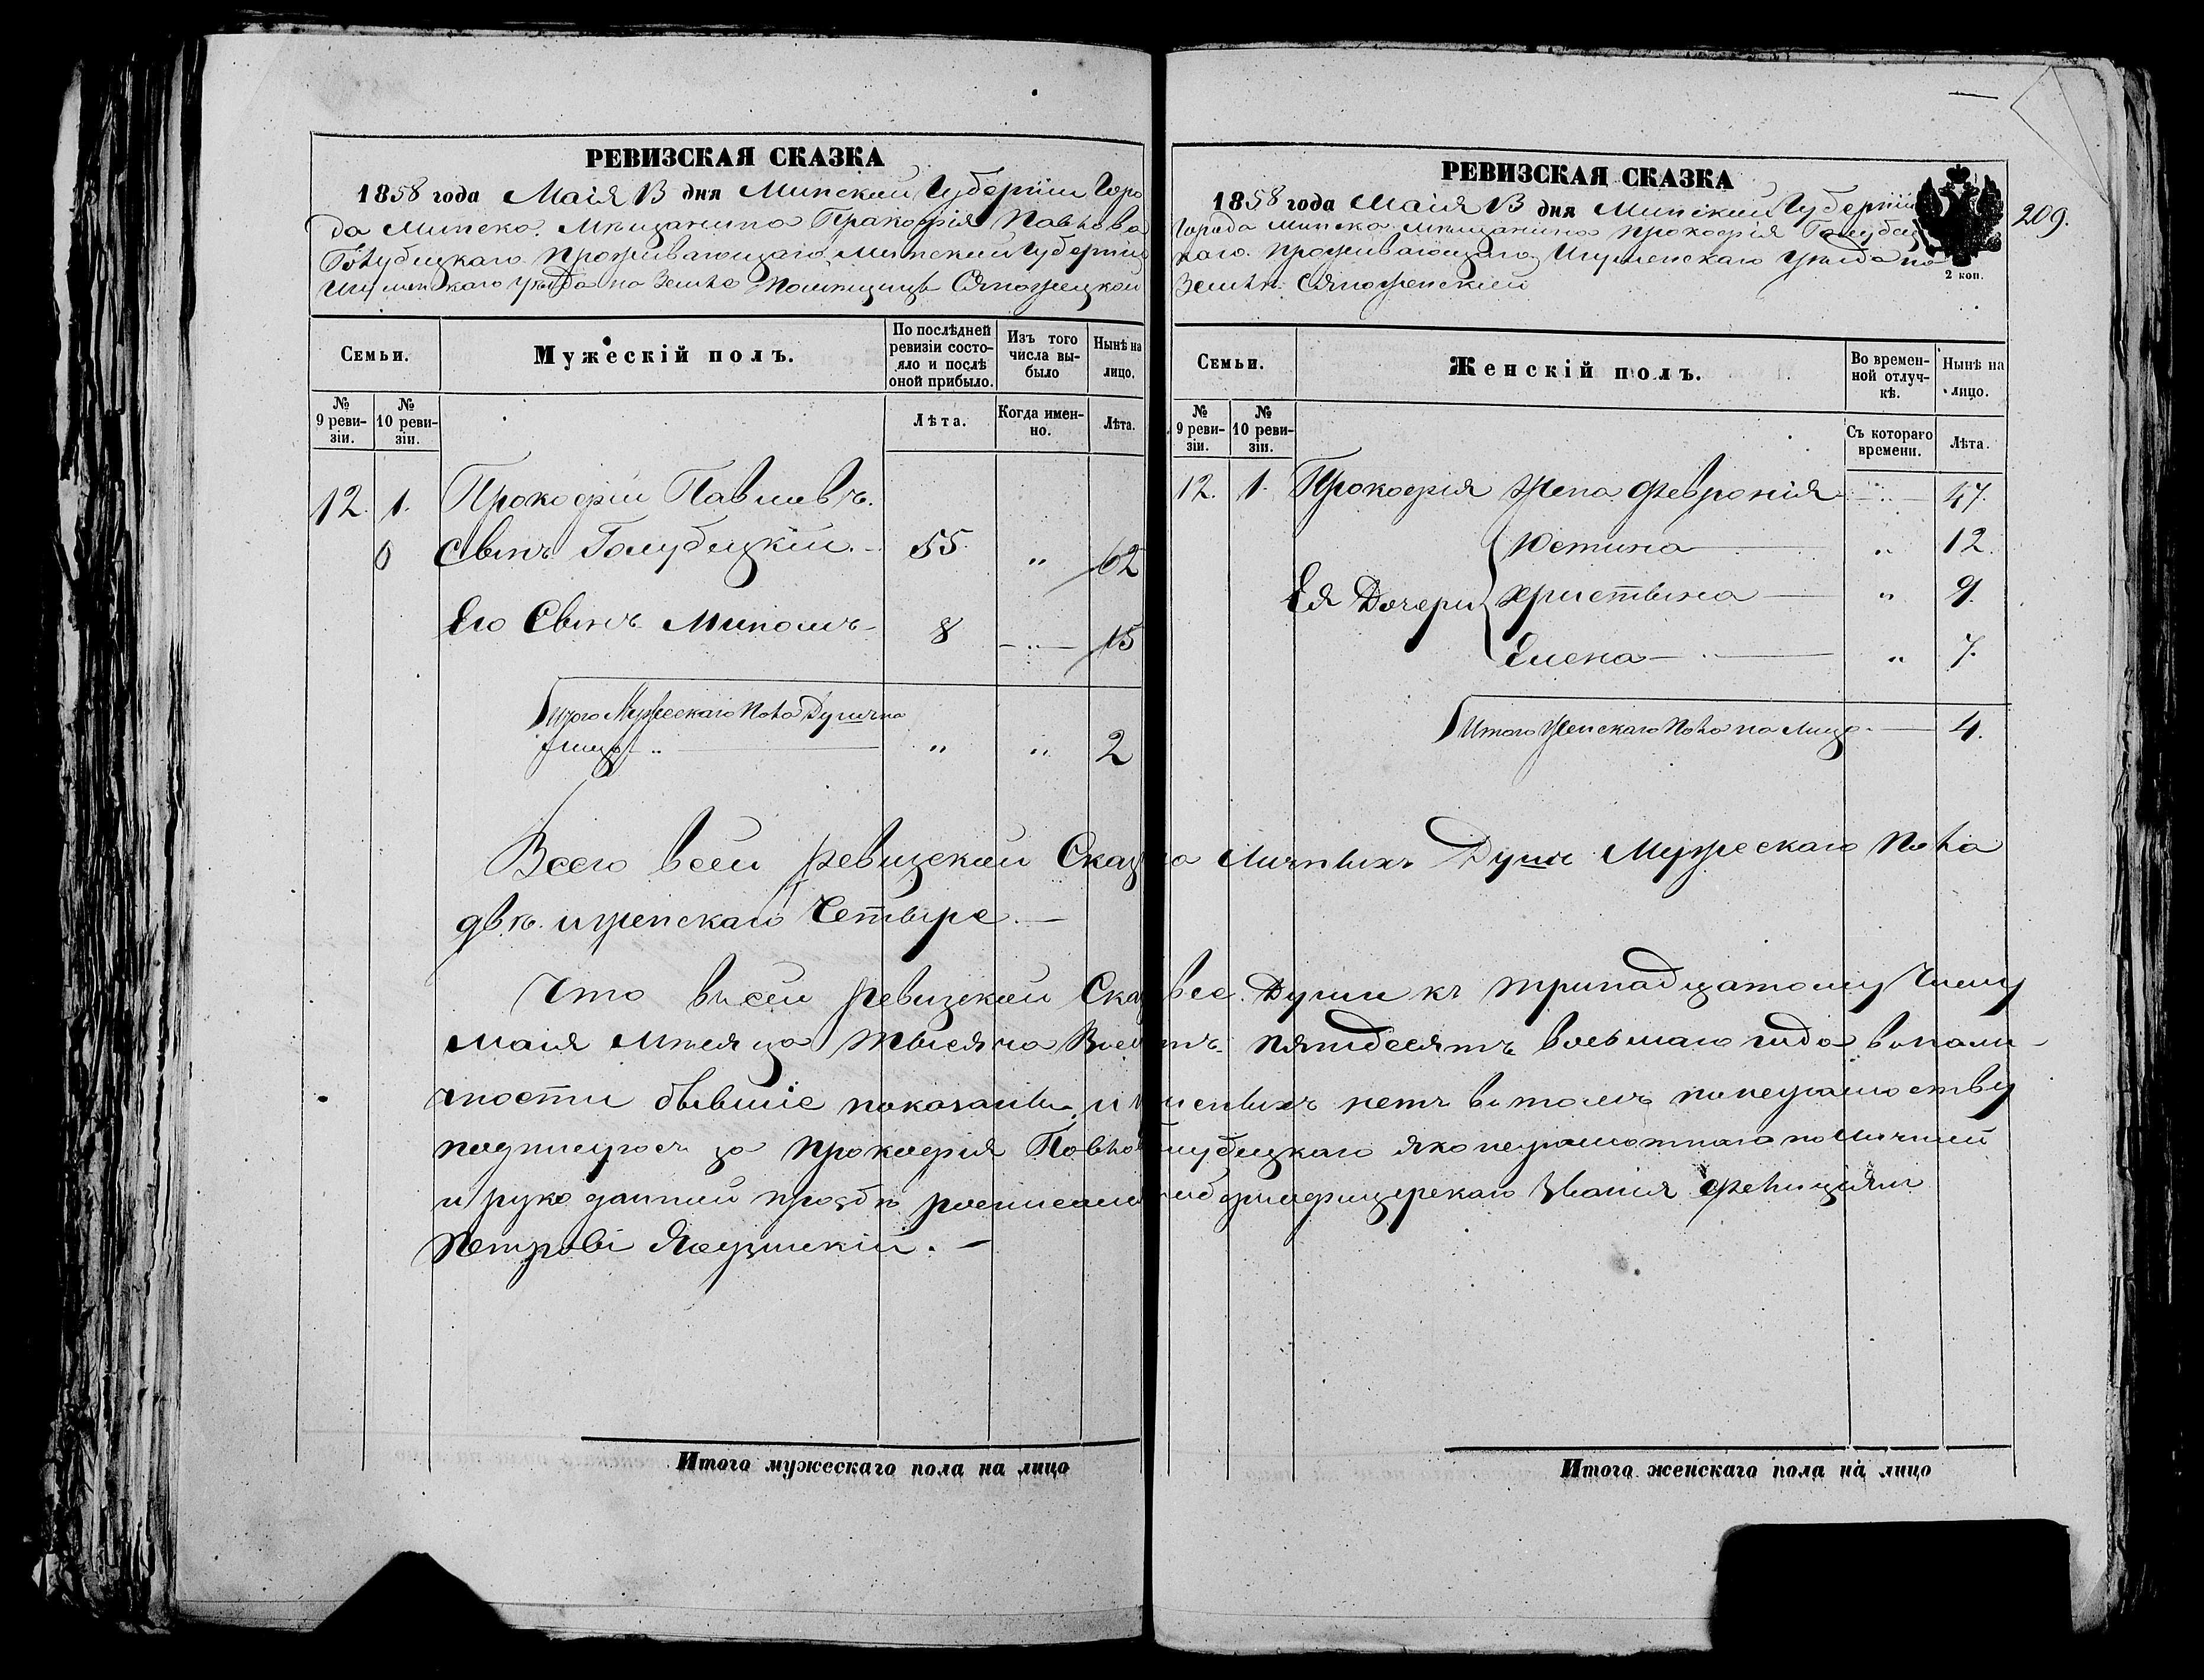 РЕВИЗСКАЯ СКАЗКА
1858 года Маія 13 дня Минской Губерніи Горо
да Минска Мещанина Пракофія Павлова
Голубицкаго Проживающаго Минской Губерніи
Игуменскаго Уезда на Земле Помещицы
Семьи.
Мужескій полъ.
По послѣдней ревизіи состо-яло и послѣ оной прибыло.
Изъ того числа вы-было
Нынѣ на лицо.
№ 9 реви-зіи.
№ 10 реви-зіи.
Лѣта.
Когда имен-но.
Лѣта.
12. 1. Прокофій Павловъ.
0 Сынъ Голубицкій. 55 " 62
Его Сынъ 8 " 15
Итого Мужескаго Пола Душъ на
лицо " " 2
РЕВИЗСКАЯ СКАЗКА
1858 года Маія 13 дня Минской Губерніи
Города Минска Мещанина Прокофія Голубец
каго Проживающаго Игуменскаго Уезда на
Земли
209.
2 коп.
Семьи.
Женскій полъ.
Во времен-ной отлуч-кѣ.
Нынѣ на лицо.
№ 9 реви-зіи.
№ 10 реви-зіи.
Съ котораго времени.
Лѣта.
12. 1. Прокофія Жена Февронія " 47.
Юстина " 12.
Ея Дочери Христына " 9.
Елена " 7.
Итого Женскаго Пола на Лицо. 4.
Всего всей ревизской Сказ на Личныхъ Душъ Мужескаго Пола
двѣ. и женскаго Четыре.
Что въ сей ревизской Ска все. Души къ тринадцатому Числу
Маія Месяца тысяча Восем тъ пятидесятъ восьмаго года въ нали-
чности бывшіе показаны, и нетъ въ томъ по неграмотству
подписуюсь за Прокофія Павло лубицкаго яко неграмотнаго по личной
и рукоданной прозбѣ росписал званія